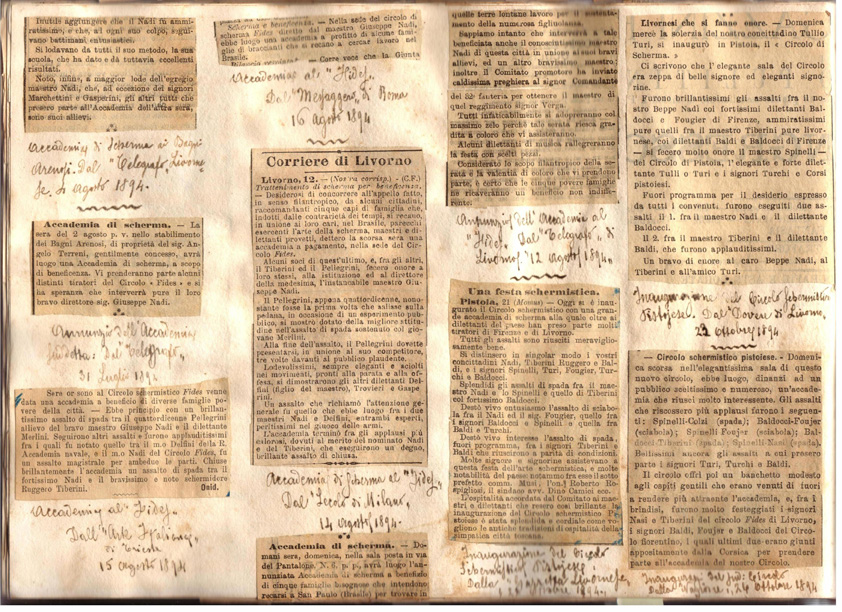 Inutile aggiungere che il Nadi fu ammi-
ratissimo, e che, ad ogni suo colpo, segui-
vano battimani entusiastici.
Si lodavano da tutti il suo metodo, la sua
scuola, che ha dato e dà tuttavia eccellenti
risultati.
Noto, infine, a maggior lode dell'egregio
maestro Nadi, che, ad eccezione dei signori
Marchettini e Gasperini, gli altri tutti che
presero parte all'Accademia dell'altra sera,
sono suoi allievi.
Accademia di Scherma ai Bagni
Arenosi. Dal "Telegrafo", Livorno
agosto 1894.
Accademia di scherma. — La
sera del 2 agosto p. v. nello stabilimento
dei Bagni Arenosi, di proprietà del sig. An-
gelo Terreni, gentilmente concesso, avrà
luogo una Accademia di scherma, a scopo
di beneficenza. Vi prenderanno parte alcuni
distinti tiratori del Circolo « Fides » e si
ha speranza che interverrà pure il loro
bravo direttore sig. Giuseppe Nadi.
Annunzio dell'Accademia
suddetta: Dal "Telegrafo",
31 Luglio 1894
Sere or sono al Circolo schermistico Fides venne
data una accademia a beneficio di diverse famiglie po-
vere della città. — Ebbe principio con un brillan-
tissimo assalto di spada tra il quattordicenne Pellegrini
allievo del bravo maestro Giuseppe Nadi e il dilettante
Merlini. Seguirono altri assalti e furono applauditissimi
fra i quali fu notato quello tra il m.o Dufinà della R.
Accademia navale, e il m.o Nadi del Circolo Fides, fu
un assalto magistrale per ambedue le parti. Chiuse
brillantemente l'accademia un assalto di spada tra il
fortissimo Nadi e il bravissimo e noto schermidore
Ruggero Tiberini.
Accademia al "Fides".
Dall'"Arte
di Trieste
15 agosto 1894
Scherma e beneficenza. — Nella sede del circolo di
scherma Fides diretto dal maestro Giuseppe Nadi,
ebbe luogo una accademia a profitto di alcune fami-
glie di braccianti che si recano a cercar lavoro nel
Brasile.
Corre voce che la Giunta
Accademia al "Fides".
Dal "Messaggero", di Roma
16 agosto 1894
Corriere di Livorno
Livorno, 12. — (Nos va corrisp.) — (C.F.)
Trattenimento di scherma per beneficenza.
— Desiderosi di concorrere all'appello fatto,
in senso filantropico, da alcuni cittadini,
raccomandanti cinque capi di famiglia che,
indotti dalle contrarietà dei tempi, si recano,
in unione ai loro cari, nel Brasile, parecchi
eccellenti l'arte della scherma, maestri e di-
lettanti provetti, dettero la scorsa sera una
accademia a pagamento, nella sede del Cir-
colo Fides.
Alcuni soci di quest'ultimo, e, fra gli altri,
il Tiberini ed il Pellegrini, fecero onore a
loro stessi, alla istituzione ed al direttore
della medesima, l'instancabile maestro Giu-
seppe Nadi.
Il Pellegrini, appena quattordicenne, nono-
stante fosse la prima volta che salisse sulla
pedana, in occasione di un esperimento pub-
blico, si mostrò dotato della migliore attitu-
dine nell'assalto di spada sostenuto col gio-
vane Merlini.
Alla fine dell'assalto, il Pellegrini dovette
presentarsi, in unione al suo competitore,
tre volte davanti al pubblico plaudente.
Lodevolissimi, sempre eleganti e sciolti
nei movimenti, pronti alla parata e alla of-
fesa, si dimostrarono gli altri dilettanti Del-
fini (figlio del maestro), Trovieri e Gaspe-
rini.
Un assalto che richiamò l'attenzione ge-
nerale fu quello che ebbe luogo fra i due
maestri Nadi e Delfino, entrambi esperti,
peritissimi nel giuoco delle armi.
L'accademia terminò fra gli applausi più
calorosi, dovuti al merito del nominato Nadi
e del Tiberini, che eseguirono un degno,
brillante assalto di chiusa.
Accademia di Scherma al "Fides".
Dal "Secolo di Milano".
14 agosto 1894.
Accademia di scherma. — Do-
mani sera, domenica, nella sala posta in via
del Pantalone, N. 6, p. p., avrà luogo l'an-
nunziata Accademia di scherma a beneficio
di cinque famiglie bisognose che intendono
recarsi a San Paulo (Brasile) per trovare in
quelle terre lontane lavoro per il sostenta-
mento della numerosa figliuolanza.
Sappiamo intanto che interverrà a tale
beneficiata anche il conosciutissimo maestro
Nadi di questa città in unione dei suoi bravi
allievi, ed un altro bravissimo maestro;
inoltre il Comitato promotore ha inviato
caldissima preghiera al signor Comandante
del 32° fanteria per ottenere il maestro di
quel reggimento signor Verga.
Tutti infaticabilmente si adopreranno col
massimo zelo perchè tale serata riesca gra-
dita a coloro che vi assisteranno.
Alcuni dilettanti di musica rallegreranno
la festa con scelti pezzi.
Considerato lo scopo filantropico della se-
rata e la valentia di coloro che vi prendono
parte, è certo che le cinque povere famiglie
ne ricaveranno un beneficio non indiffe-
rente.
Annunzio dell'Accademia al
"Fides". Dal "Telegrafo", di
Livorno. 12 agosto 1894.
Una festa schermistica.
Pistoia, 21 (Momus) — Oggi si è inau-
gurato il Circolo schermistico con una gran-
de accademia di scherma alla quale oltre ai
dilettanti del paese han preso parte molti
tiratori di Firenze e di Livorno.
Tutti gli assalti sono riusciti meraviglio-
samente bene.
Si distinsero in singolar modo i vostri
concittadini Nadi, Tiberini Ruggero e Bal-
di, e i signori Spinelli, Turi, Fougier, Tur-
chi e Baldocci.
Splendidi gli assalti di spada fra il mae-
stro Nadi e lo Spinelli e quello di Tiberini
col fortissimo Baldocci.
Destò vivo entusiasmo l'assalto di sciabo-
la fra il Nadi ed il sig. Fougier, quello fra
i signori Baldocci e Spinelli e quella fra
Baldi e Turchi.
Destò vivo interesse l'assalto di spada,
fuori programma, fra i signori Tiberini e
Baldi che riuscirono a parità di condizioni.
Molte signore e signorine assistevano a
questa festa dell'arte schermistica, e molte
notabilità del paese notammo fra esse il sotto
prefetto comm Musi, l'onj Roberto Ro-
spigliosi, il sindaco avv. Dino Camici ecc.
L'ospitalità accordata dal Comitato ai mae-
stri e dilettanti che resero così brillante, la
inaugurazione del Circolo schermistico Pi-
stoiese è stata splendida e cordiale come vo-
gliono le antiche tradizioni di ospitalità della
simpatica città toscana.
Inaugurazione del Circolo
Schermistico Pistoiese
Dalla "Gazzetta Livornese",
Livornesi che si fanno onore. — Domenica
mercè la solerzia del nostro concittadino Tullio
Turi, si inaugurò in Pistoia, il « Circolo di
Scherma. »
Ci scrivono che l'elegante sala del Circolo
era zeppa di belle signore ed eleganti signo-
rine.
Furono brillantissimi gli assalti fra il no-
stro Beppe Nadi col fortissimi dilettanti Bal-
docci e Fougier di Firenze, ammiratissimi
pure quelli fra il maestro Tiberini pure livor-
nese, coi dilettanti Baldi e Baldocci di Firenze
— si fecero molto onore il maestro Spinelli —
del Circolo di Pistoia, l'elegante e forte dilet-
tante Tullo o Turi e i signori Turchi e Corsi
pistoiesi.
Fuori programma per il desiderio espresso
da tutti i convenuti, furono eseguiti due as-
salti, il 1. fra il maestro Nadi e il dilettante
Baldocci.
il 2. fra il maestro Tiberini e il dilettante
Baldi, che furono applauditissimi.
Un bravo di cuore al caro Beppe Nadi, al
Tiberini e all'amico Turi.
Inaugurazione del Circolo Schermistico
Pistojese. Dal "Dovere di Livorno,
22 Ottobre 1894
— Circolo schermistico pistoiese. — Domeni-
ca scorsa nell'elegantissima sala di questo
nuovo circolo, ebbe luogo, dinanzi ad un
pubblico sceltissimo e numeroso, un'accade-
mia che riuscì molto interessante. Gli assalti
che riscossero più applausi furono i seguen-
ti: Spinelli-Colzi (spada); Baldocci-Fonjer
(sciabola); Spinelli Fonjer (sciabola); Bal-
docci Tiberini (spada); Spinelli-Nasi (spada).
Bellissima ancora gli assalti a cui presero
parte i signori Turi, Turchi e Baldi.
Il circolo offrì poi un banchetto modesto
agli ospiti gentili che erano venuti di fuori
a rendere più attraente l'accademia, e, fra i
brindisi, furono molto festeggiati i signori
Nadi e Tiberini del circolo Fides di Livorno,
i signori Baldi, Fonjer e Baldocci del Circo-
lo fiorentino, i quali ultimi due erano giunti
appositamente dalla Corsica per prendere
parte all'accademia del nostro circolo.
Inaugurazi del sud: Circolo
Dalla "Nazione", 24 Ottobre 1894